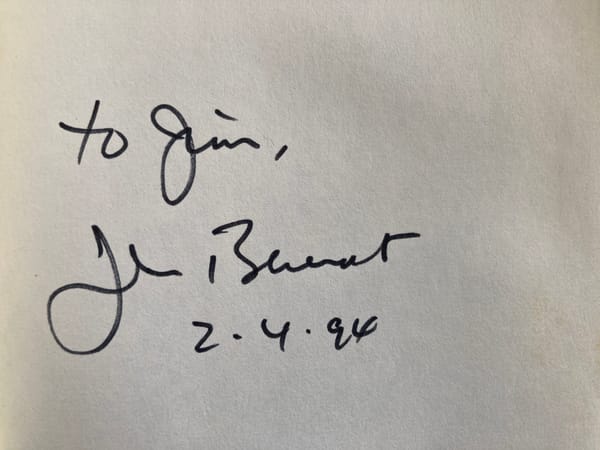 to Jim,
John Berendt
2.4.94